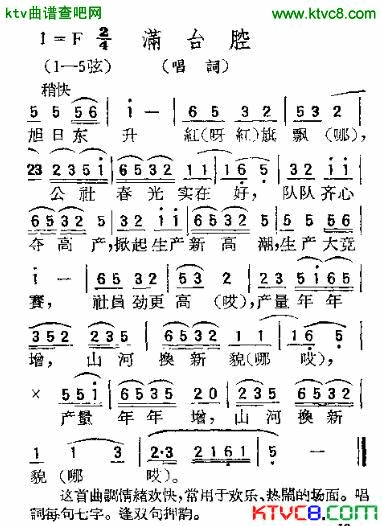 ktv曲谱查吧网 www.ktvc8.com
1=F 2/4 滿台腔
(1—5弦) (唱詞)
稍快
5 5 56 | i — | 65 32 | 53 2 |
旭日东 升 紅(呀紅)旗飘(哪),
23 235i | 6532 | 1 1 | 16 5 | 32 ii |
公社春光实在好,队队齐心
6532 | 32 ii | 6532 | 235 | 5 56 |
夺高产,掀起生产新高潮,生产大竞
i — | 65 32 | 53 2 | 2 3 | 5 i 65 |
賽, 社員劲更高(哎),产量年年
352 | 235i | 6532 | 1 1 | 16 5 |
增, 山河換新貌(哪 哎),
× 55i | 6532 | 352 0 | 235i | 6532 |
产量年年增,山河換新
1 1 3 | 2·3 | 2161 | 5 — |
貌(哪 哎)。
这首曲調情緒欢快,常用于欢乐、热闹的场面。唱
詞每句七字。逢双句押韵。
KTVC8.COM